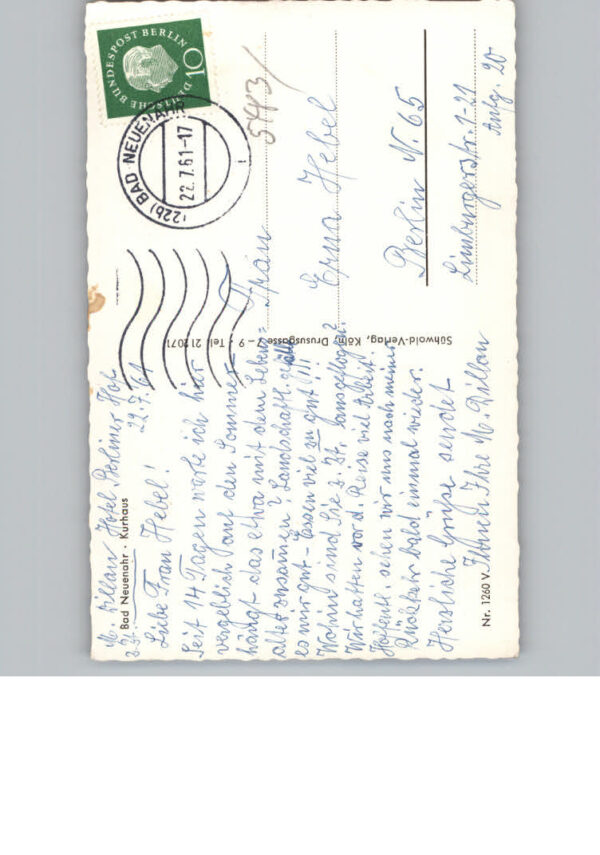 Bad Neuenahr · Kurhaus
22.7.61
Liebe Frau Hebel!
Seit 14 Tagen warte ich hier
vergeblich auf den Sommer
hängt das etwa mit dem Lebens=
alter zusammen? Landschaftl. gefällt
es mir gut – Essen viel zu gut!!!
Wohin sind Sie z. Zt. ausgeflogen?
Wir hatten vor d. Reise viel Arbeit.
Hoffentl. sehen wir uns nach meiner
Rückkehr bald einmal wieder.
Herzliche Grüße sendet
Ihnen Ihre M. Dillan
Nr. 1260 V
Sühwold-Verlag, Köln, Drususgasse 7 – 9 · Tel. 21 2071
DEUTSCHE BUNDESPOST BERLIN
10
(22b) BAD NEUENAHR
22.7.61-17
5413/
Frau
Erna Hebel
Berlin N. 65
Limburgerstr. 1-21
Aufg. 20